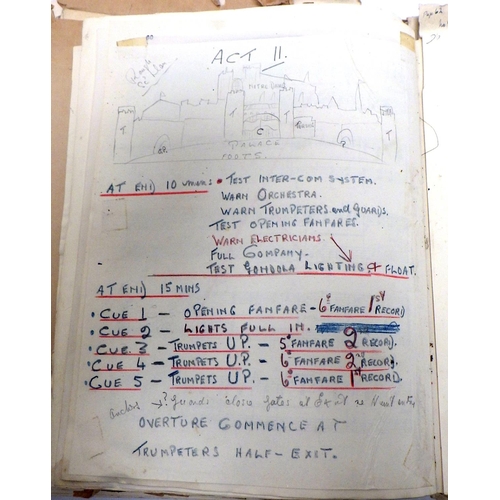 ACT II.
AT END 10 mins • TEST INTER-COM SYSTEM.
WARN ORCHESTRA.
WARN TRUMPETERS and GUARDS.
TEST OPENING FANFARES.
WARN ELECTRICIANS.
FULL COMPANY.
TEST GONDOLA LIGHTING & FLOAT.
AT END 15 MINS
• CUE 1 – OPENING FANFARE – 6" FANFARE 1ST RECORD
• CUE 2 – LIGHTS FULL IN.
• CUE 3 – TRUMPETS UP. – 5" FANFARE 2ND RECORD.
• CUE 4 – TRUMPETS UP – 6" FANFARE 2ND RECORD.
• CUE 5 – TRUMPETS UP – 6" FANFARE 1ST RECORD.
→? Guards close gates at Exit
OVERTURE COMMENCE AT
TRUMPETERS HALF-EXIT.